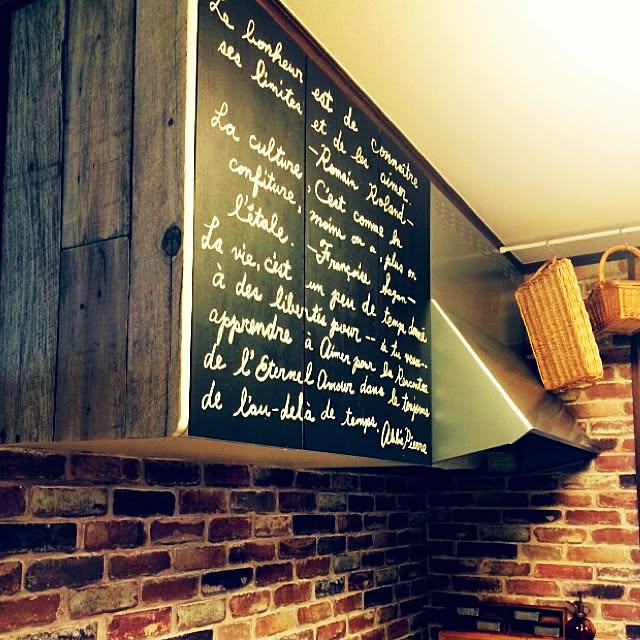 Le bonheur est de connaître
ses limites et de les aimer.
-Romain Roland-
La culture, C'est comme la
confiture, moins on a, plus on
l'étale. -Françoise Sagan-
La vie, c'est un peu de temps donné
à des libertés pour -- si tu veux --
apprendre à Aimer pour la Rencontre
de l'Eternel Amour dans le toujours
de l'au-delà de temps. Abbé Pierre